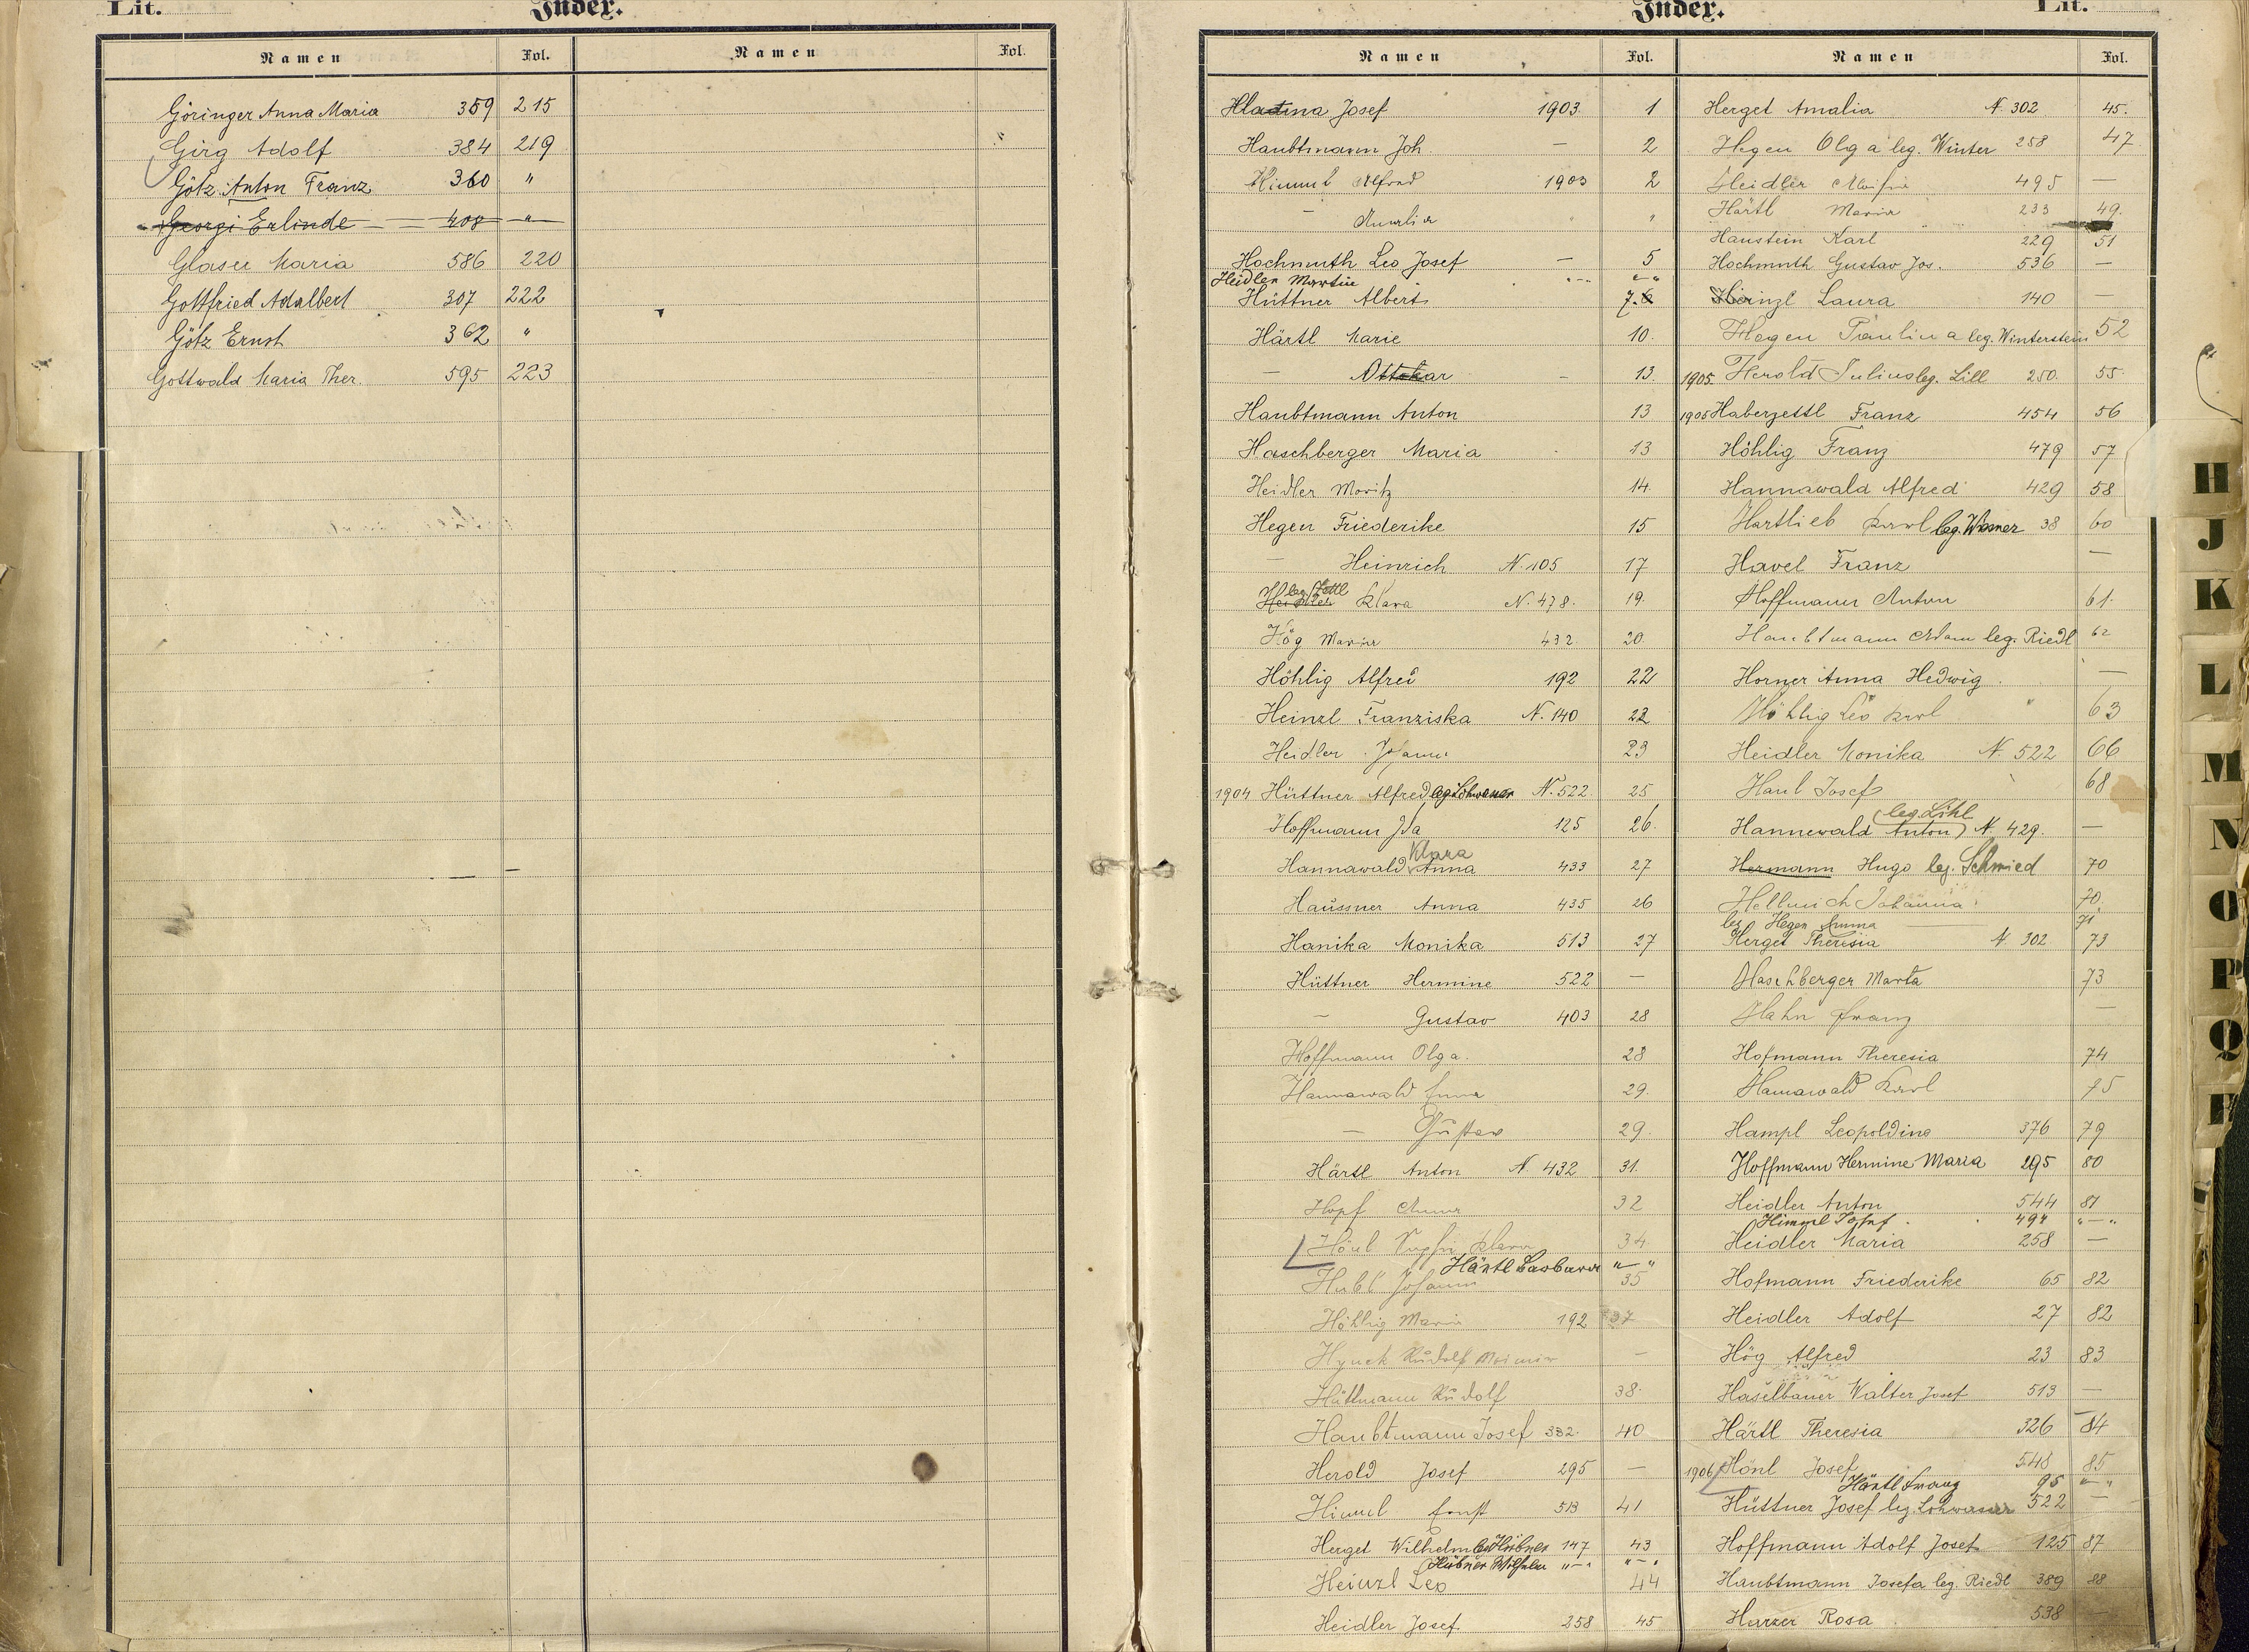 Lit. Index.
Namen Fol. Namen Fol.
Göringer Anna Maria 359 215
Girg Adolf 384 219
Götz Anton Franz 360 "
Georgi Erlinde — — 408 — " —
Glaser Maria 586 220
Gottfried Adalbert 307 222
Götz Ernst 362 "
Gottwald Maria Ther. 595 223
Index. Lit.
Namen Fol. Namen Fol.
Hladina Josef 1903. 1
Haubtmann Joh. — 2
Himml Alfred 1903 2
— Amalia " "
Hochmuth Leo Josef — 5
Heidler Martin "-" "-"
Hüttner Albert 7.
Härtl Marie 10.
— Ottokar — 13.
Haubtmann Anton 13
Haschberger Maria 13
Heidler Moritz 14.
Hegen Friederike 15
— Heinrich N. 105 17
leg. Zettl
Heidler Klara N. 478. 19.
Hög Maria 432 20.
Höhlig Alfred 192 22
Heinzl Franziska N. 140 22
Heidler Johann 23
1904 Hüttner Alfred leg. Lohwasser N. 522. 25
Hoffmann Ida 125 26.
Klara
Hannawald Anna 433 27
Haussner Anna 435 26
Hanika Monika 513 27
Hüttner Hermine 522 —
— Gustav 403 28
Hoffmann Olga. 28
Hannawald Anna 29.
— Gustav 29.
Härtl Anton N. 432 31.
Hopf Anna 32
Hönl Klara 34
Härtl Barbara "-"
Johann 35
Höhlig Maria 192 37
Hynek Rudolf —
Hüttmann Rudolf 38.
Haubtmann Josef 332. 40
Herold Josef 295 —
Himml Ernst 513 41
Herget Wilhelm leg. Hübner 147 43
Hübner Wilhelm "-" "-"
Heinzl Leo 44
Heidler Josef 258 45
Herget Amalia N. 302 45.
Hegen Olga leg. Winter 258 47
Heidler Aloisia 495 —
Härtl Maria 233 49.
Haustein Karl 229 51
Hochmuth Gustav Jos. 536 —
Heinzl Laura 140 —
Hegen Paulina leg. Winterstein 52
1905. Herold Julius leg. Lill 250. 55.
1905 Haberzettl Franz 454 56
Höhlig Franz 479 57
Hannawald Alfred 429 58
Hartlieb Karl leg. 38 60
Havel Franz —
Hoffmann Anton 61.
Haubtmann Adam leg. Riedl 62
Horner Anna Hedwig —
Höhlig Leo Karl " 63
Heidler Monika N. 522 66
Haul Josef 68
leg. Lihl
Hannewald Anton N. 429. —
Hermann Hugo leg. Schmied 70
Hellmich Johanna 70.
leg Hegen Anna — 71
Herget Theresia N 302 73
Haschberger Marta 73
Hahn Franz —
Hofmann Theresia 74
Hannawald Karl 75
Hampl Leopoldine 376 79
Hoffmann Hermine Maria 295 80
Heidler Anton 544 81
Himml Josef 494 "-"
Heidler Maria 258 —
Hofmann Friederike 65 82
Heidler Adolf 27 82
Hög Alfred 23 83
Haselbauer Walter Josef 513 —
Härtl Theresia 326 84
1906 Hönl Josef 548 85
Härtl Franz 95 "-"
Hüttner Josef leg. Lohwasser 522 —
Hoffmann Adolf Josef 125 87
Haubtmann Josefa leg. Riedl 389 88
Harzer Rosa 538 —
H
J
K
L
M
N
O
P
Q